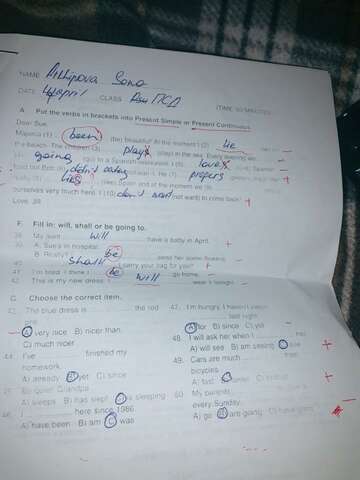 NAME Arhipova Sona
DATE 4 april CLASS ПСД (TIME: 10 MINUTES)
A Put the verbs in brackets into Present Simple or Present Continuous.
Dear Sue,
Majorca (1) been (be) beautiful! At the moment I (2) lie
the beach. The children (3) plays (play) in the sea. Every evening we
going (go) to a Spanish restaurant. I (5) loves Spanish
food but Ben didn't eating want it. He (7) prepers
likes Spain and at the moment we (9)
ourselves very much here. I (10) don't want (not want) to come back!
Love, Jill
F Fill in: will, shall or be going to.
38. My aunt will have a baby in April. +
39. A: Sue's in hospital.
B: Really? be send her some flowers. -
40. Shall I carry your bag for you? +
41. I'm tired. I think I be go home. -
42. This is my new dress. I will wear it tonight. -
G Choose the correct item.
43. The blue dress is the red
one.
A) very nice B) nicer than
C) much nicer
44. I've finished my
homework.
A) already B) yet C) since
45. Be quiet! Grandpa
A) sleeps B) has slept C) is sleeping
46. I here since 1986.
A) have been B) am C) was
47. I'm hungry. I haven't eaten
last night.
A) for B) since C) yet
48. I will ask her when I her.
A) will see B) am seeing C) see
49. Cars are much than
bicycles.
A) fast B) faster C) fastest
50. My parents
every Sunday.
A) go B) are going C) have gone